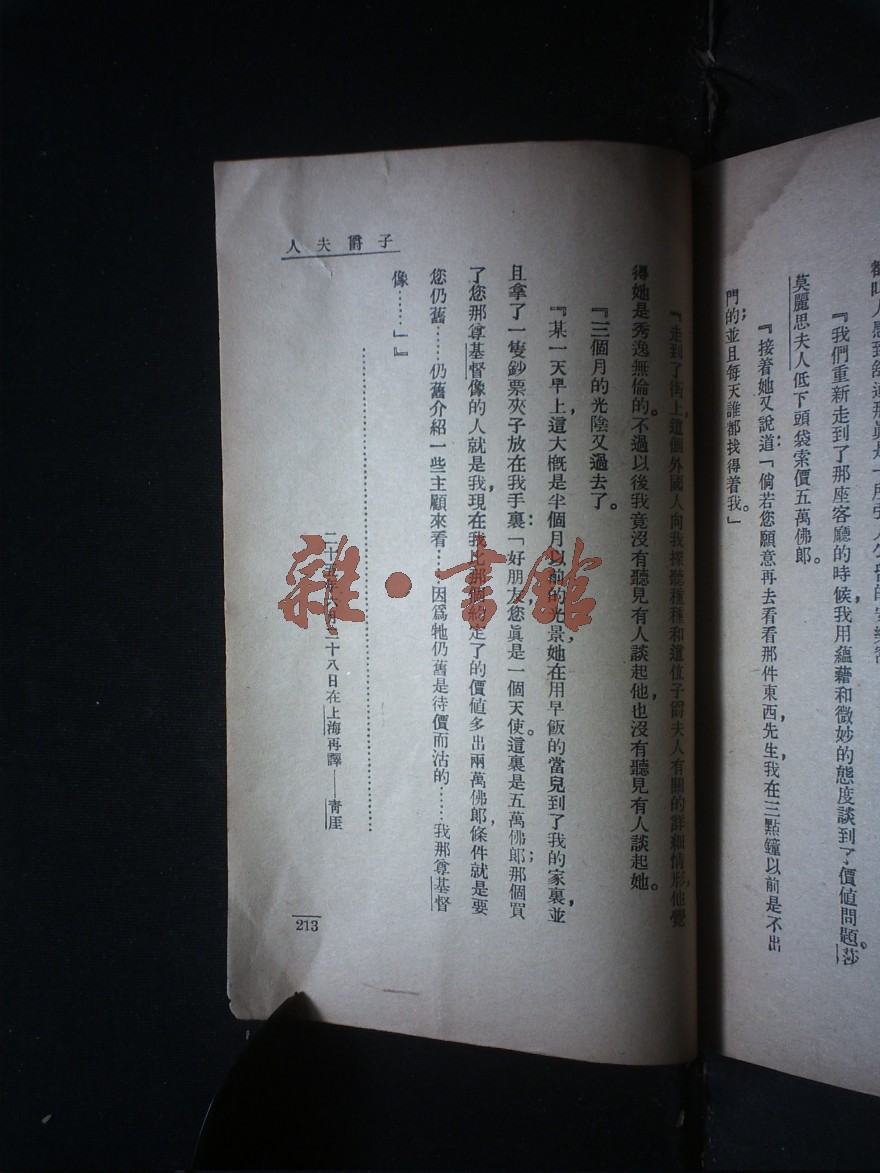 『我們重新走到了那座客廳的時候我用蘊藉和微妙的態度談到了價値問題。莎
莫麗思夫人低下頭袋索價五萬佛郎。
『接着她又說道：「倘若您願意再去看看那件東西，先生，我在三點鐘以前是不出
門的；並且每天誰都找得着我。」
子爵夫人
『走到了街上，這個外國人向我探聽種種和這位子爵夫人有關的詳細情形，他覺
得她是秀逸無倫的。不過以後我竟沒有聽見有人談起他，也沒有聽見有人談起她。
『三個月的光陰又過去了。
『某一天早上，這大概是半個月以前的光景，她在用早飯的當兒到了我的家裏，並
且拿了一隻鈔票夾子放在我手裏：「好朋友，您眞是一個天使。這裏是五萬佛郎；那個買
了您那尊基督像的人就是我，現在我比那個約定了的價値多出兩萬佛郎，條件就是要
您仍舊……仍舊介紹一些主顧來看…因爲牠仍舊是待價而沽的……我那尊基督
像……」』
二十八日在上海再譯——靑厓
213
雜·書館